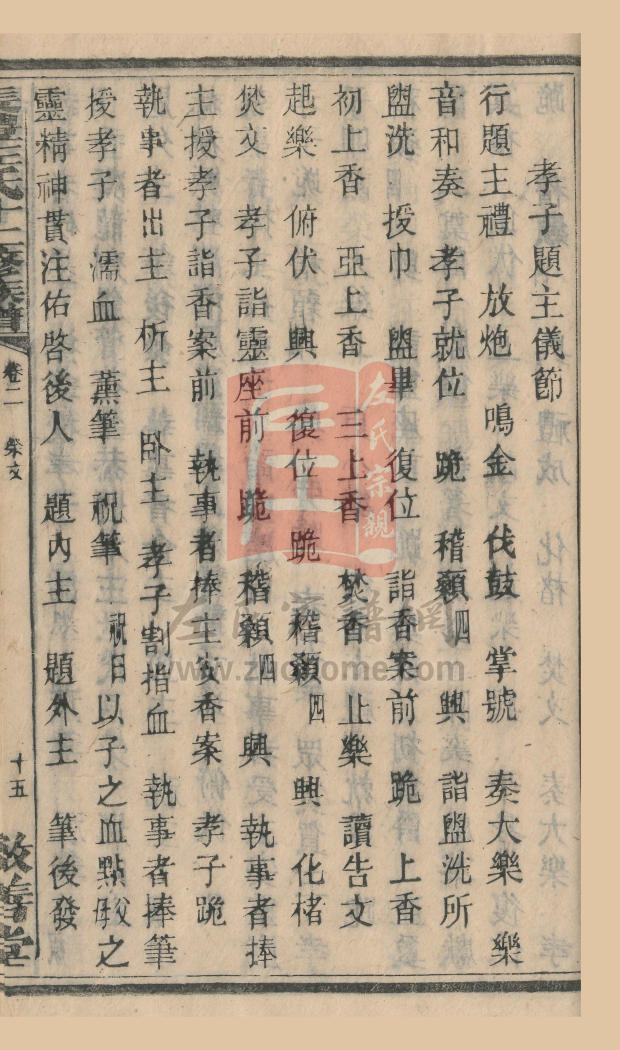 孝子題主儀節
行題主禮 放炮 鳴金 伐鼓 掌號 奏大樂 樂
音和奏 孝子就位 跪 稽顙四 興 詣盥洗所
盥洗 授巾 盥畢 復位 詣香案前 跪 上香
初上香 亞上香 三上香 焚香 止樂 讀告文
起樂 俯伏 興 復位 跪 稽顙四 興 化楮
焚文 孝子詣靈座前 跪 稽顙四 興 執事者捧
主授孝子詣香案前 執事者捧主安香案 孝子跪
執事者出主 析主 卧主 孝子割指血 執事者捧筆
授孝子 濡血 薰筆 祝筆 祝曰以子之血點父母之
靈精神貫注佑啓後人 題內主 題外主 筆後發
氏十二修族譜
卷二 祭文
十五
敦善堂
左氏宗親
左氏家譜網